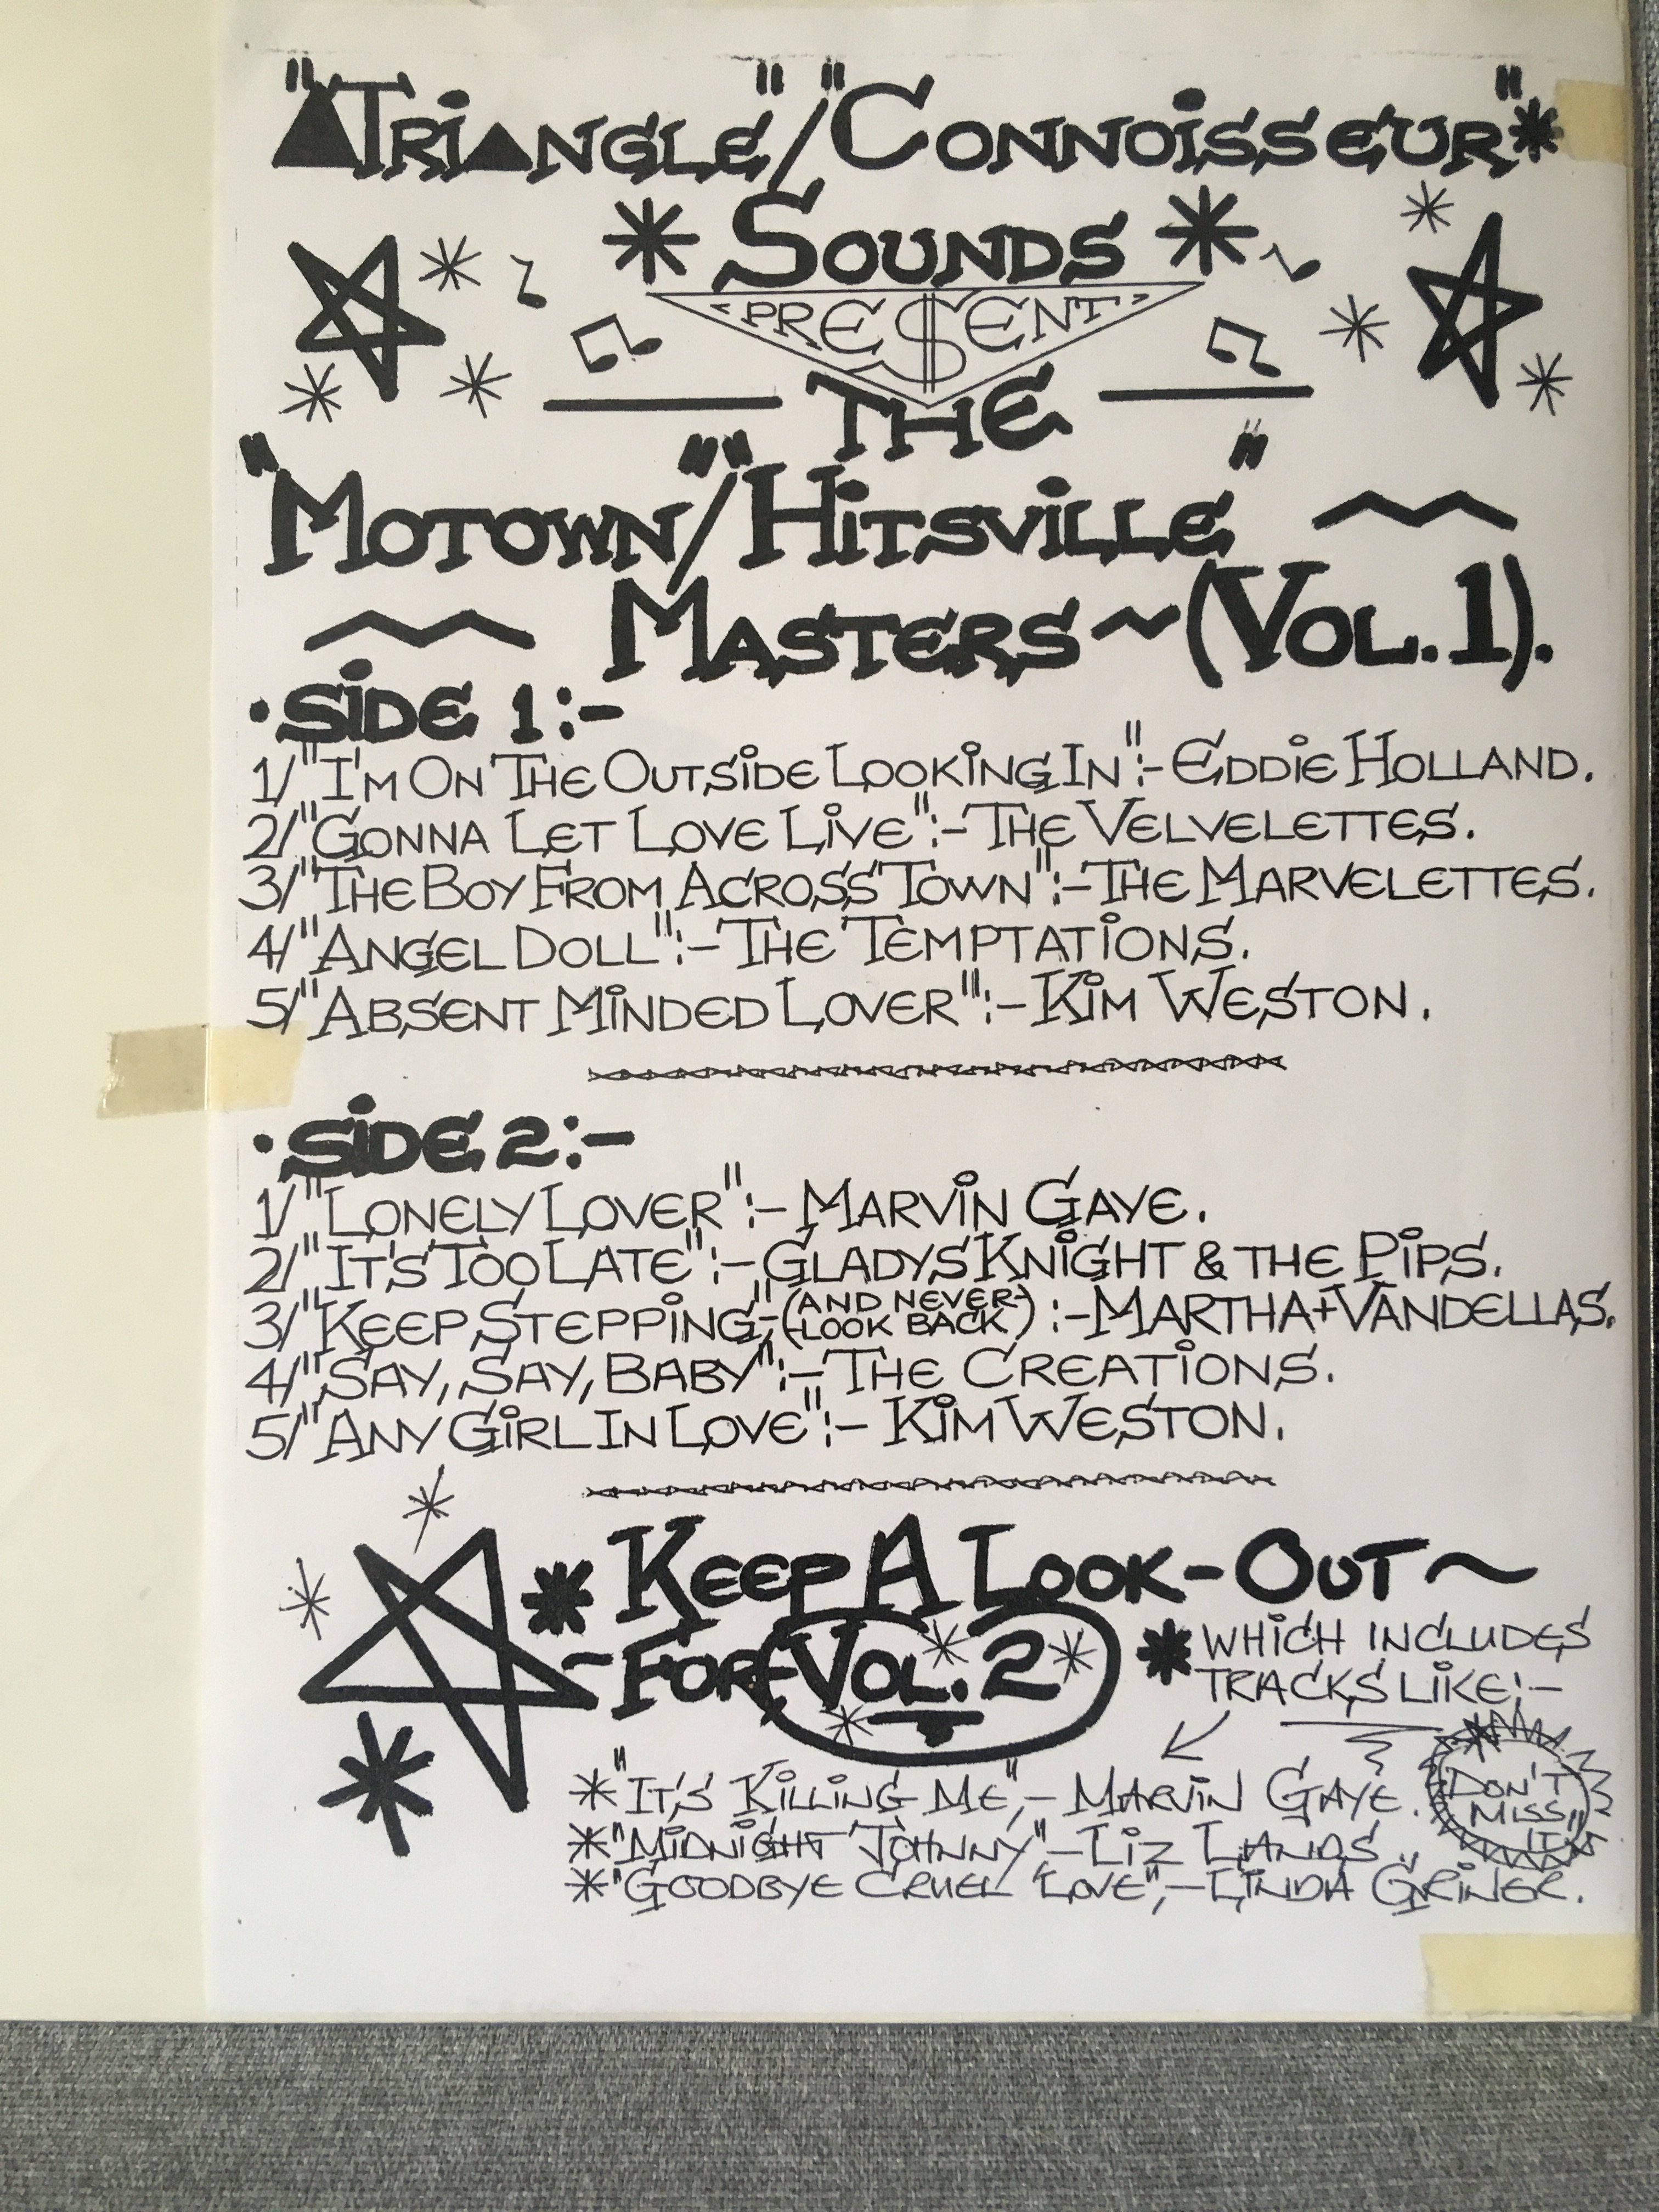 "TRIANGLE"/"CONNOISSEUR"*
* SOUNDS *
"PRE$ENT"
THE
"MOTOWN"/"HITSVILLE"
MASTERS ~ (VOL. 1).
• SIDE 1:-
1/ "I'M ON THE OUTSIDE LOOKING IN":- EDDIE HOLLAND.
2/ "GONNA LET LOVE LIVE":- THE VELVELETTES.
3/ "THE BOY FROM ACROSS TOWN":- THE MARVELETTES.
4/ "ANGEL DOLL":- THE TEMPTATIONS.
5/ "ABSENT MINDED LOVER":- KIM WESTON.
• SIDE 2:-
1/ "LONELY LOVER":- MARVIN GAYE.
2/ "IT'S TOO LATE":- GLADYS KNIGHT & THE PIPS.
3/ "KEEP STEPPING"-(AND NEVER-
-LOOK BACK) :- MARTHA + VANDELLAS.
4/ "SAY, SAY, BABY":- THE CREATIONS.
5/ "ANY GIRL IN LOVE":- KIM WESTON.
* KEEP A LOOK-OUT ~
~ FOR VOL. 2
* WHICH INCLUDES
TRACKS LIKE:-
* "IT'S KILLING ME",- MARVIN GAYE.
* "MIDNIGHT JOHNNY",- LIZ LANDS.
* "GOODBYE CRUEL LOVE",- LINDA GRINER.
"DON'T
MISS
IT"